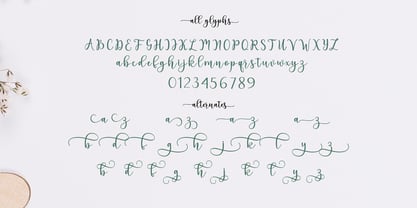 all glyphs
ABCDEFGHIJKLMNOPQRSTUVWXYZ
abcdefghijklmnopqrstuvwxyz
0123456789
alternates
a z a z a z a z
b d f g h j k t y z
b d f g h j k t y